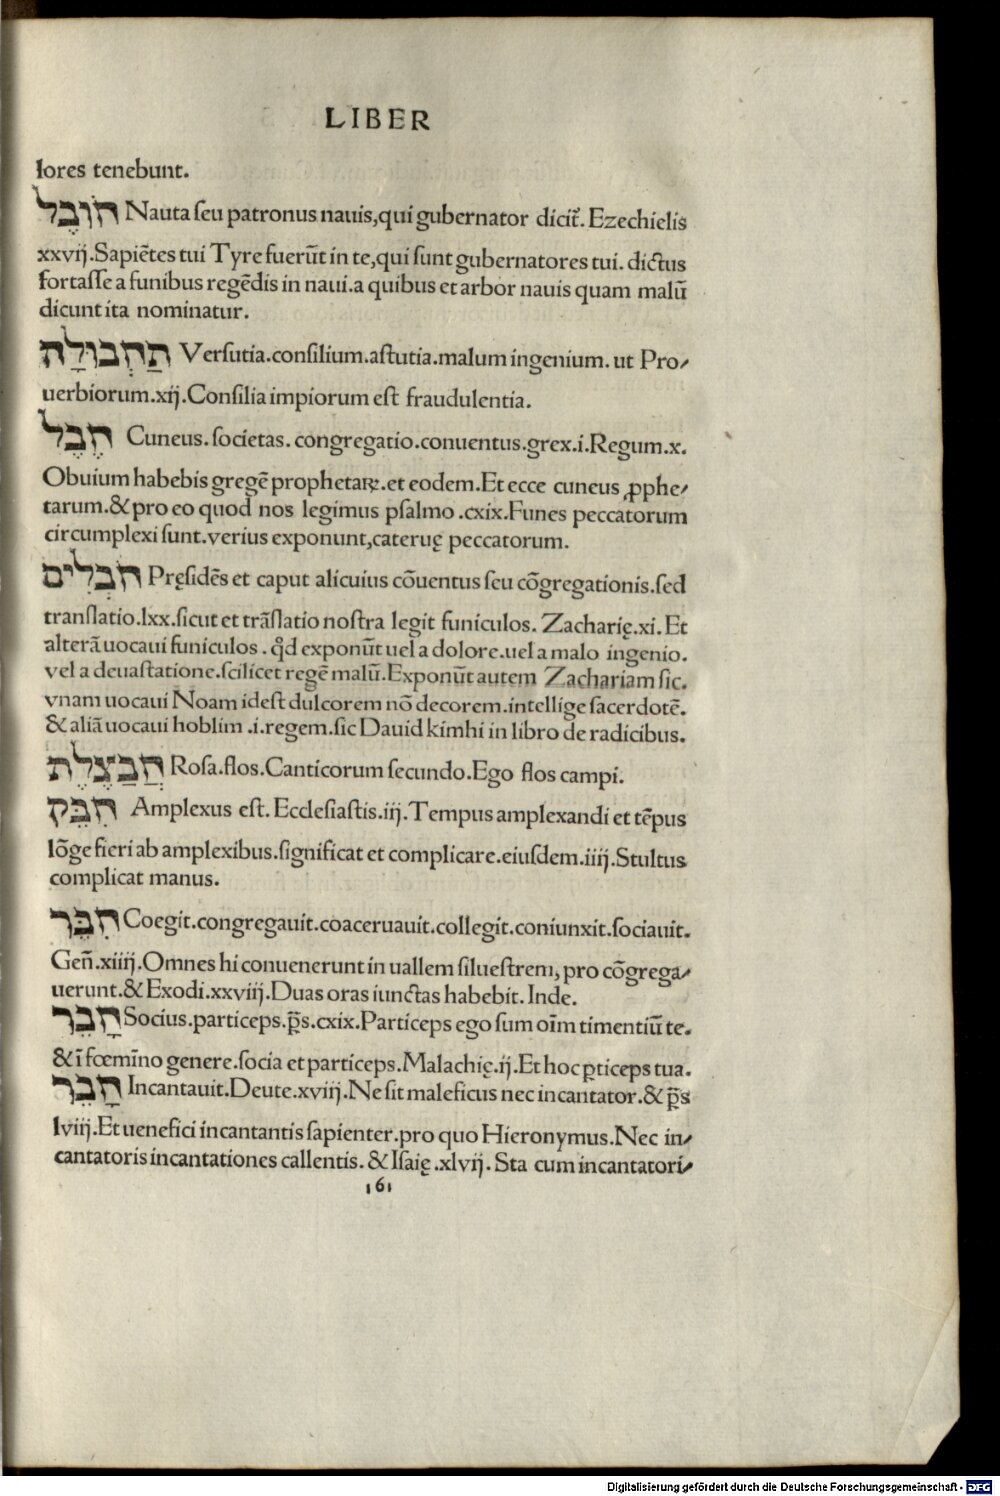 LIBER
lores tenebunt.
חֹובֶל Nauta ſeu patronus nauis,qui gubernator dicit᷑. Ezechielis
xxvij.Sapiẽtes tui Tyre fuerũt in te,qui ſunt gubernatores tui. dictus
fortaſſe a funibus regẽdis in naui.a quibus et arbor nauis quam malũ
dicunt ita nominatur.
תַּחְבּוּלָה Verſutia.conſilium.aſtutia.malum ingenium. ut Pro-
uerbiorum.xij.Conſilia impiorum eſt fraudulentia.
חֶבֶל Cuneus. ſocietas. congregatio.conuentus.grex.i.Regum.x.
Obuium habebis gregẽ prophetaꝝ.et eodem.Et ecce cuneus ꝓphe-
tarum.& pro eo quod nos legimus pſalmo .cxix.Funes peccatorum
circumplexi ſunt.verius exponunt,cateruę peccatorum.
חֹבְלִים Pręſidẽs et caput alicuius cõuentus ſeu cõgregationis.ſed
tranſlatio.lxx.ſicut et trãſlatio noſtra legit funiculos. Zacharię.xi. Et
alterã uocaui funiculos . qd̉ exponũt uel a dolore.uel a malo ingenio.
vel a deuaſtatione.ſcilicet regẽ malũ.Exponũt autem Zachariam ſic.
vnam uocaui Noam ideſt dulcorem nõ decorem.intellige ſacerdotẽ.
& aliã uocaui hoblim .i.regem.ſic Dauid kimhi in libro de radicibus.
חֲבַצֶּלֶת Roſa.flos.Canticorum ſecundo.Ego flos campi.
חִבֵּק Amplexus eſt. Eccleſiaſtis.iij.Tempus amplexandi et tẽpus
lõge fieri ab amplexibus.ſignificat et complicare.eiuſdem.iiij.Stultus
complicat manus.
חִבֵּר Coegit.congregauit.coaceruauit.collegit.coniunxit.ſociauit.
Geñ.xiiij.Omnes hi conuenerunt in uallem ſilueſtrem, pro cõgrega-
uerunt.& Exodi.xxviij.Duas oras iunctas habebit. Inde.
חָבֵר Socius.particeps.p̃s.cxix.Particeps ego ſum oĩm timentiũ te.
& ĩ fœmĩno genere.ſocia et particeps.Malachię.ij.Et hoc ꝑticeps tua.
חָבֵר Incantauit.Deute.xviij.Ne ſit maleficus nec incantator.& p̃s
lviij.Et uenefici incantantis ſapienter.pro quo Hieronymus.Nec in-
cantatoris incantationes callentis. & Iſaię .xlvij. Sta cum incantatori-
161
Digitalisierung gefördert durch die Deutsche Forschungsgemeinschaft - DFG